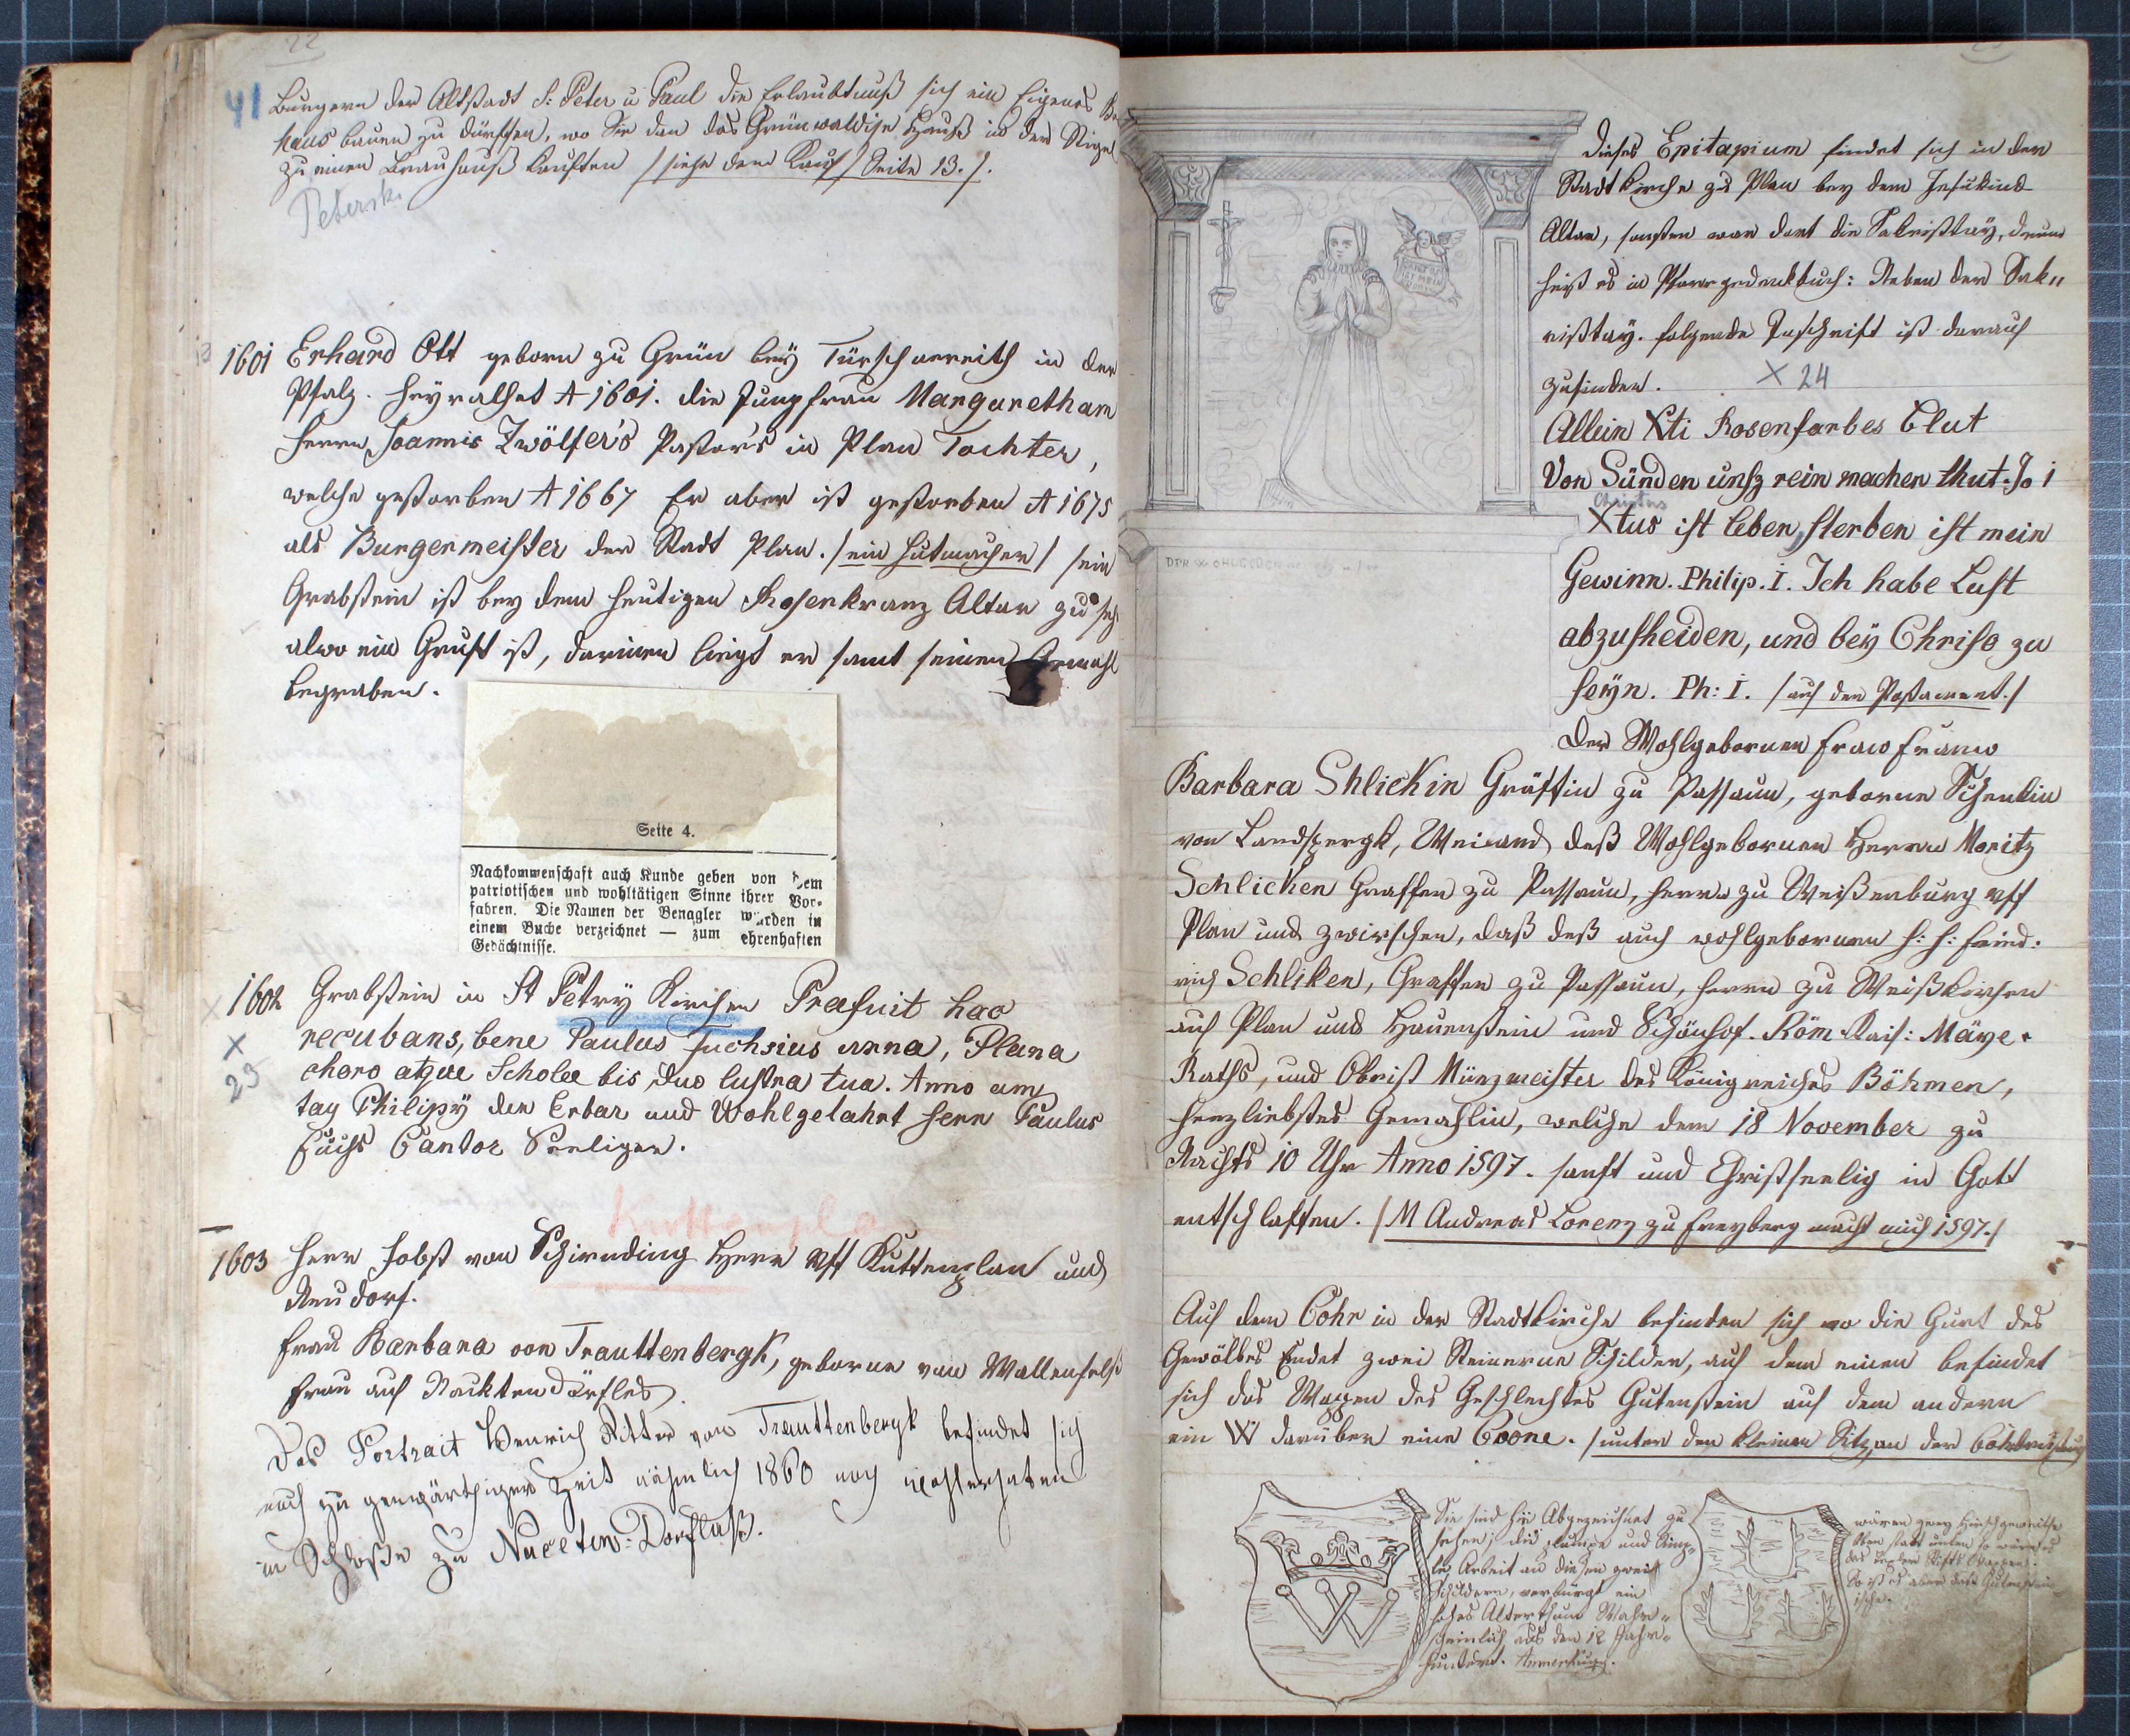 22
41 Burgern der Altstadt S: Peter u Paul die Erlaubtnuß sich ein Eigenes
haus bauen zu dürffen, wo Sie dan das Grünwaldise Hauß in der
zu einen Brauhauß kauften /siehe dem Kauf/ Seite 13./.
Petersk.
1601 Erhard Ott geborn zu Grün beÿ Türschenreith in der
Pfalz. heÿrathet A 1601. die Jungfrau Margaretham
Herrn Joannis Zwölfer's Pastor's in Plan Tochter,
welche gestorben A 1667 Er aber ist gestorben A 1675
als Burgermeister der Stadt Plan. /ein Hutmacher/ sein
Grabstein ist beÿ dem heutigen Rosenkranz Altar zu seh
alwo ein Gruft ist, darinen liegt er samt seiner Gemahl
begraben.
Seite 4.
Nachkommenschaft auch Kunde geben von dem
patriotischen und wohltätigen Sinne ihrer Vor-
fahren. Die Namen der Benagler würden in
einem Buche verzeichnet — zum ehrenhaften
Gedächtnisse.
x 1602 Grabstein in St Petrÿ Kirchen Praefuit hac
x recubans, bene Paulus Fuchsius anna, Plana
23 choro atque Scholae bis duo lustra tua. Anno am
tag Philipÿ der Erbar und Wohlgelahrt Herr Paulus
Fuchs Cantor Seeliger.
Kuttenplan
1603 Herr Jobst von Schirnding Herr uff Kuttenplan und
Neudorf.
Frau Barbara von Trauttenbergk, geborne von Wallenfels
Frau auf Naktendörfles
Das Portrait Heinrich Ritter von Trauttenbergk befindet sich
auch zu genwärthiger Zeit nähmlich 1860 noch wohlerhaten
in Schloße zu Nacketen-Dorflaß.
Dieses Epitapium findet sich in der
Stadtkirche zu Plan bey dem Jesukind
Altar, sonsten war dort die Sakristaÿ, drum
heist es in Pfarrgedenkbuch: Neben der Sak„
ristaÿ. folgende Inschrift ist darauf
zufinden. x 24
Allein Xti Rosenfarbes Blut
Von Sünden unsz rein machen thut. Jo 1
Christus
Xtus ist leben, sterben ist mein
Gewinn. Philip. I. Ich habe Lust
abzusheiden, und beÿ Christo zu
seÿn. Ph: I. /auf den Postament./
Der Wohlgebornen Fraw Fraw
Barbara Shlickin Gräffin zu Passaun, geborne Schenkin
von Landspergk, Weiland deß Wohlgebornen Herrn Moritz
Schlicken Graffen zu Passaun, Herrn zu Weißenburg uff
Plan und zwirschen, daß deß auch wohlgebornen H: H: Fried.
rich Schliken, Graffen zu Passaun, Herrn zu Weißkirchen
auf Plan und Hauenstein und Schönhof. Röm Kais: Maÿe.
Raths, und Obrist Münzmeister des Königreiches Böhmen,
Herzliebstes Gemahlin, welche dem 18 November zu
Nachts 10 Uhr Anno 1597. sanft und Christseelig in Gott
entschlaffen. /M Andreas Lorenz zu Freyberg macht mich 1597./
Auf dem Cohr in der Stadtkirche befinden sich wo die Gurt des
Gewölbes Endet zwei Steinerne Schilder, auf dem einen befindet
sich das Wappen des Geschlechtes Gutenstein auf dem andern
ein W darüber eine Crone. /unter den kleinen Sitz an der
Sie sind hie Abgezeichnet zu
sehen; die plumpe und
Arbeit an diesen zwei
Schildern, verbürgt ein
hohes Alterthum Wahr-
scheinlich aus dem 12 Jahr-
hundert. Anmerkung.
W
wären zwey Hirschgeweihe
Oben statt unten so wäre es
das Tepler Stifts Wappen.
So ist es aber das Gutenstein
ische.